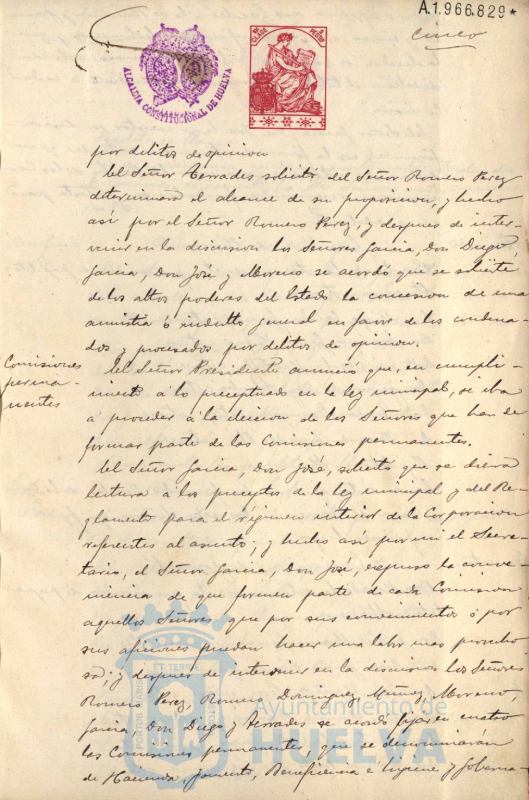 A.1.966.829*
cinco
ALCALDIA CONSTITUCIONAL DE HUELVA
por delitos de opinion
El Señor Terrades solicitó del Señor Romero Perez
determinara el alcance de su proposicion, y hecho
así por el Señor Romero Perez, y despues de inter-
venir en la discusion los Señores Garcia, Don Diego,
Garcia, Don José y Moreno se acordó que se solicite
de los altos poderes del Estado la concesion de una
amnistia ó indulto general en favor de los condena-
dos y procesados por delitos de opinion.
Comisiones
perma-
nentes
El Señor Presidente anunció que, en cumpli-
miento á lo preceptuado en la ley municipal, se iba
á proceder á la eleccion de los Señores que han de
formar parte de las Comisiones permanentes.
El Señor Garcia, Don José, solicitó que se diera
lectura á los preceptos de la ley municipal y del Re-
glamento para el régimen interior de la Corporacion
referentes al asunto; y hecho así por mi el Secre-
tario, el Señor Garcia, Don José, expuso la conve-
niencia de que formen parte de cada Comision
aquellos Señores que por sus conocimientos ó por
sus aficiones puedan hacer una labor mas provecho-
sa; y despues de intervenir en la discusion los Señores
Romero Perez, Romero Dominguez, Muñoz, Moreno,
Garcia Don Diego y Terrades se acordó fijar en cuatro
las Comisiones permanentes, que se denominarán
de Hacienda, Fomento, Beneficencia e higiene y Goberna-
Ayuntamiento de
HUELVA